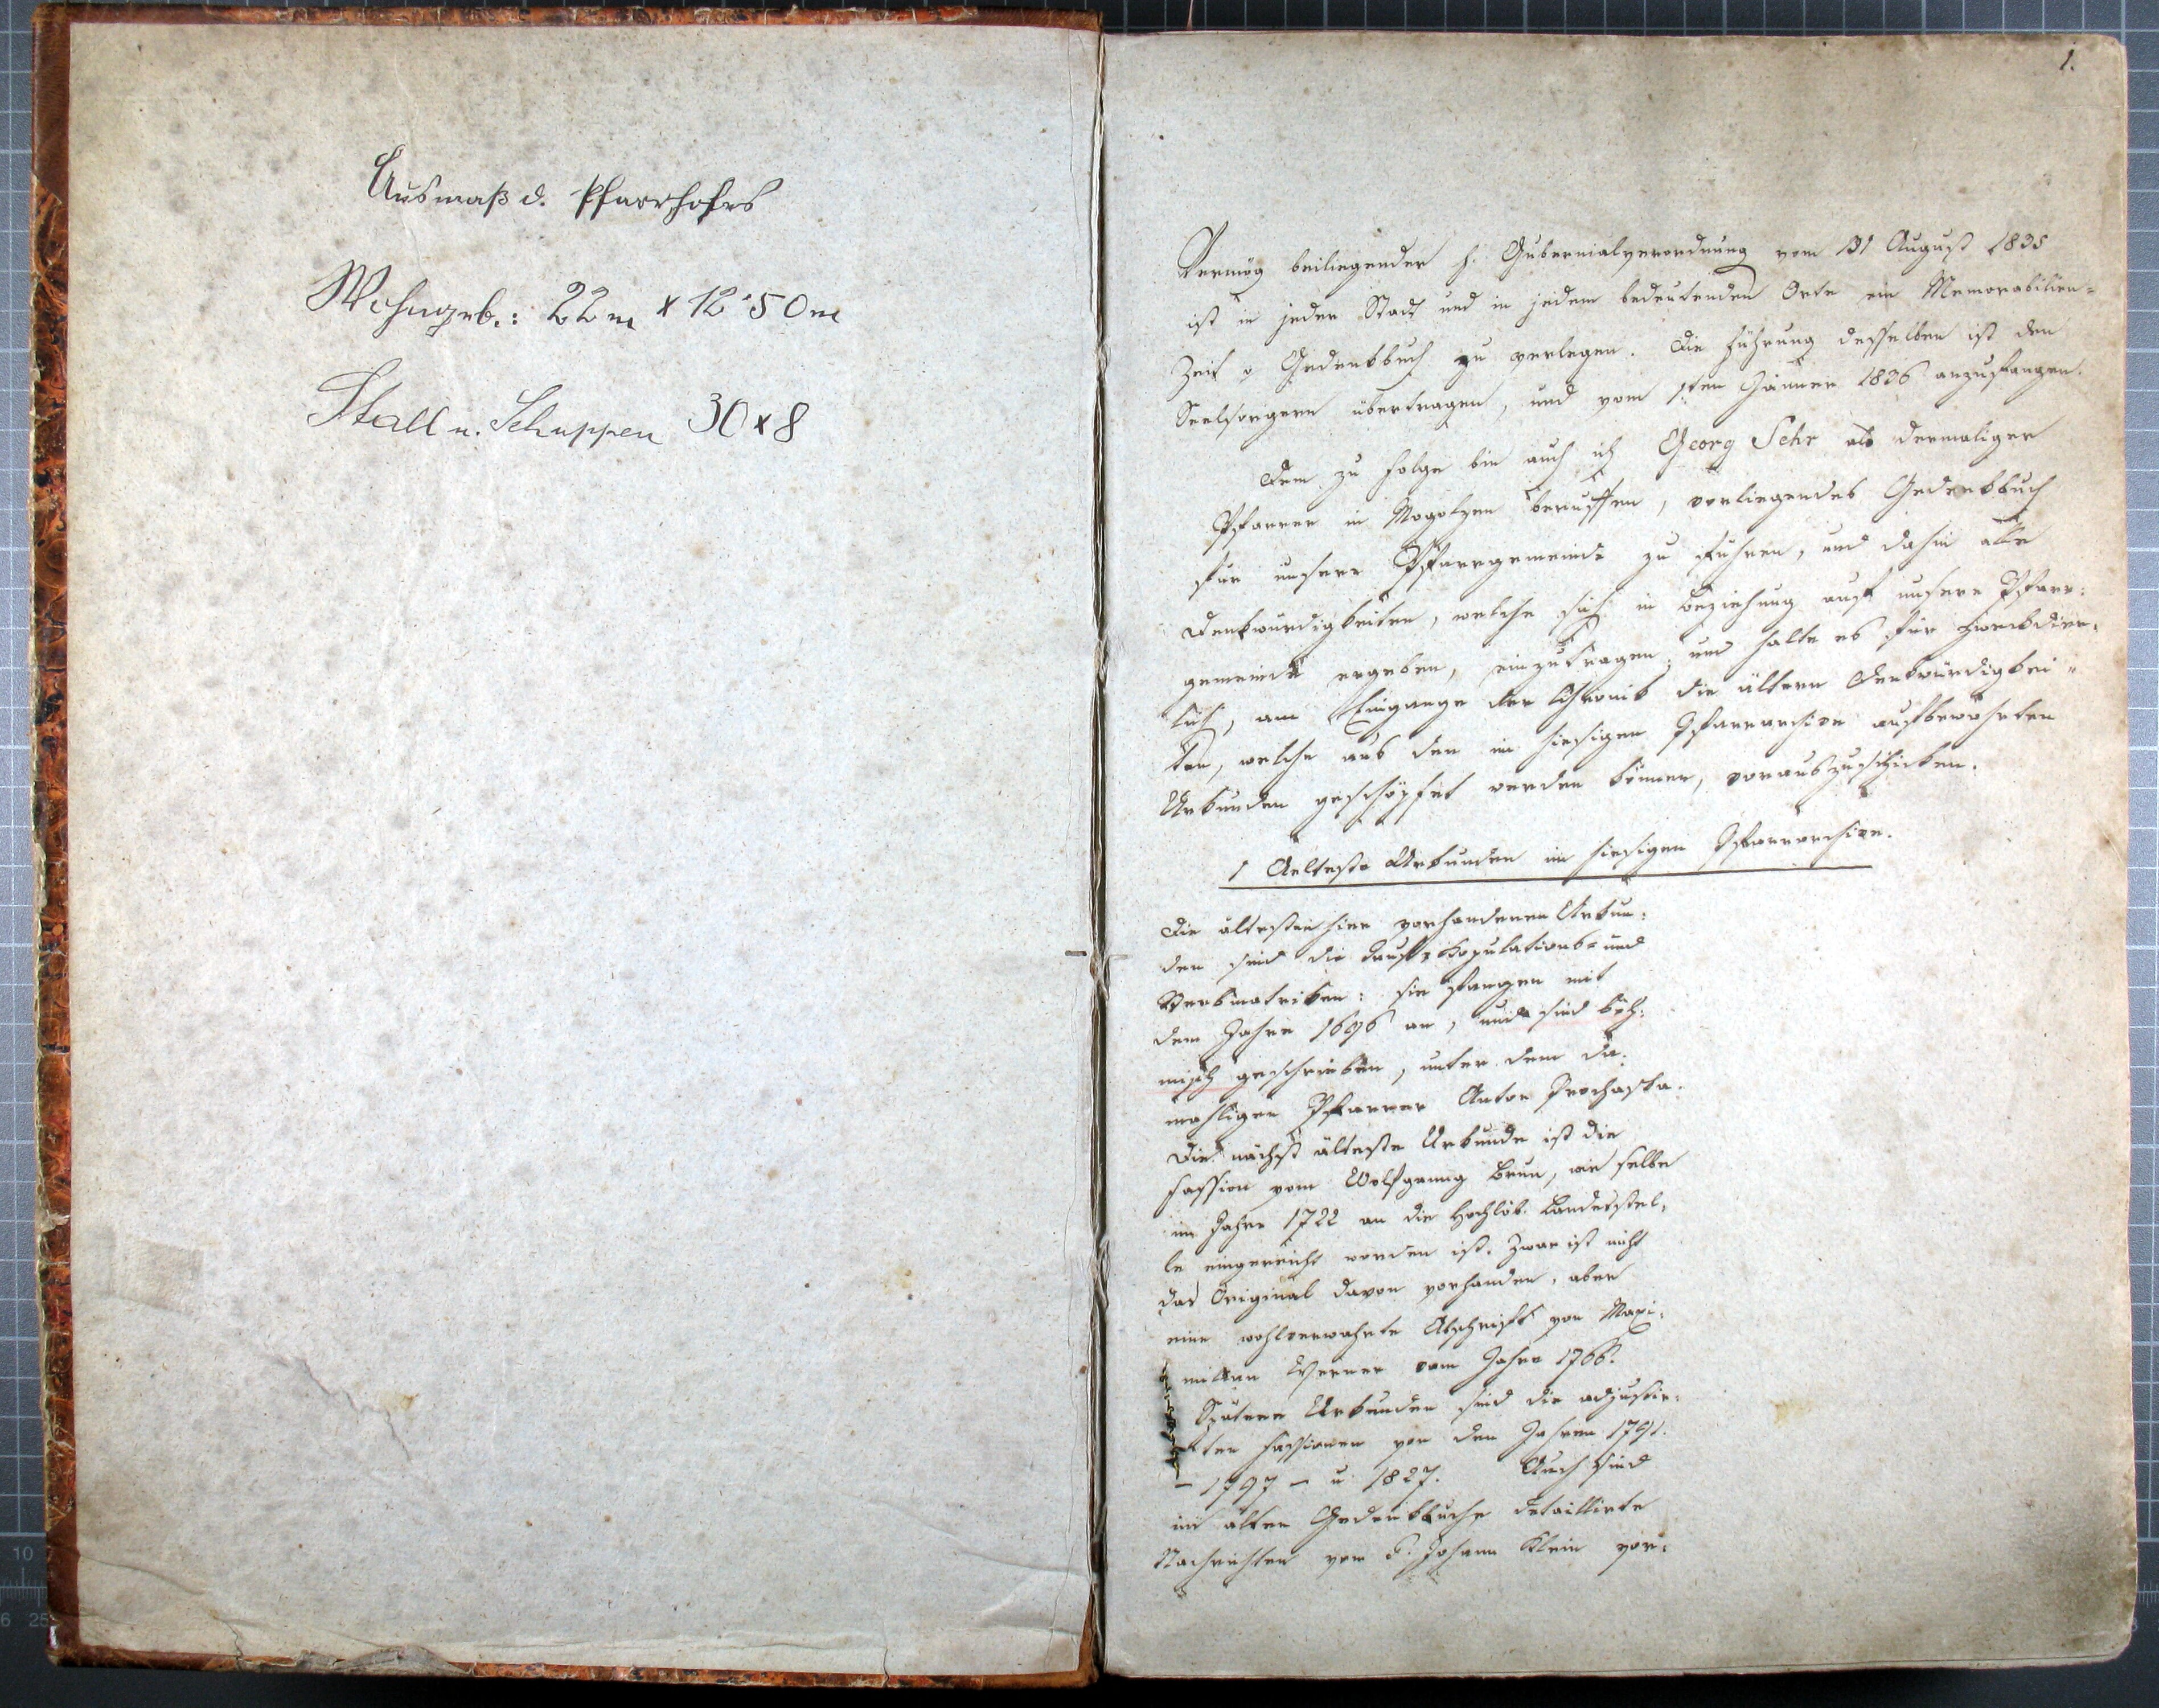 Ausmaß d. Pfarrhofes
Wohngeb.: 22 m x 12·50 m
Stall u. Schuppen 30 x 8
1.
Vermög beiliegender h. Gubernialverordnung vom 31 August 1835
ist in jeder Stadt und in jedem bedeutenden Orte ein Memorabilien=
Gedenkbuch zu verlegen. Die Führung desselben ist den
Seelsorgern übertragen, und vom 1ten Jänner 1836 anzufangen.
Dem zu Folge bin auch ich Georg Sehr als dermaliger
Pfarrer in Mogolzen beruffen, vorliegendes Gedenkbuch
für unsere Pfarrgemeinde zu führen, und dahin alle
Denkwürdigkeiten, welche sich in Beziehung auf unsere Pfarr=
gemeinde ergeben, einzutragen; und halte es für zweckdien=
lich, am Eingange der Chronik die ältern Denkwürdigkei=
ten, welche aus den im hiesigen Pfarrarchive aufbewahrten
Urkunden geschöpfet werden können, vorauszuschicken.
1 Aelteste Urkunden im hiesigen Pfarrarchive.
Die ältesten hier vorhandenen Urkun=
den sind die Tauf= Kopulations= und
Sterbmatriken: sie fangen mit
dem Jahre 1696 an, und sind böh=
misch geschrieben, unter dem da=
mahligen Pfarrer Anton Prochaska.
Die nächst älteste Urkunde ist die
Fassion vom Wolfgang Brun, wie selbe
im Jahre 1722 an die Hochlöb. Landesstel=
le eingereicht worden ist. Zwar ist nicht
das Original davon vorhanden, aber
eine wohlverwahrte Abschrift von Maxi=
milian Werner vom Jahre 1766.
Spätere Urkunden sind die adjustir=
ten Fassionen von den Jahren 1791.
– 1797 – u. 1827. Auch sind
im alten Gedenkbuche detaillirte
Nachrichten vom P. Johann Klein vor=